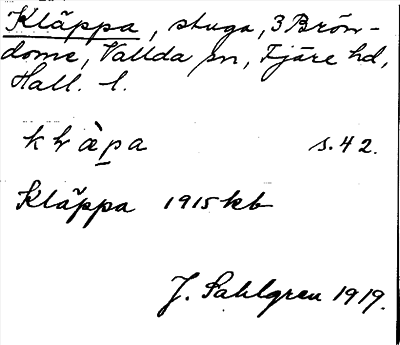 Kläppa, stuga, 3 Bröm-
dome, Vallda sn, Fjäre hd,
Hall. l.
klàpa s. 42.
Kläppa 1915 kb
J. Sahlgren 1919.